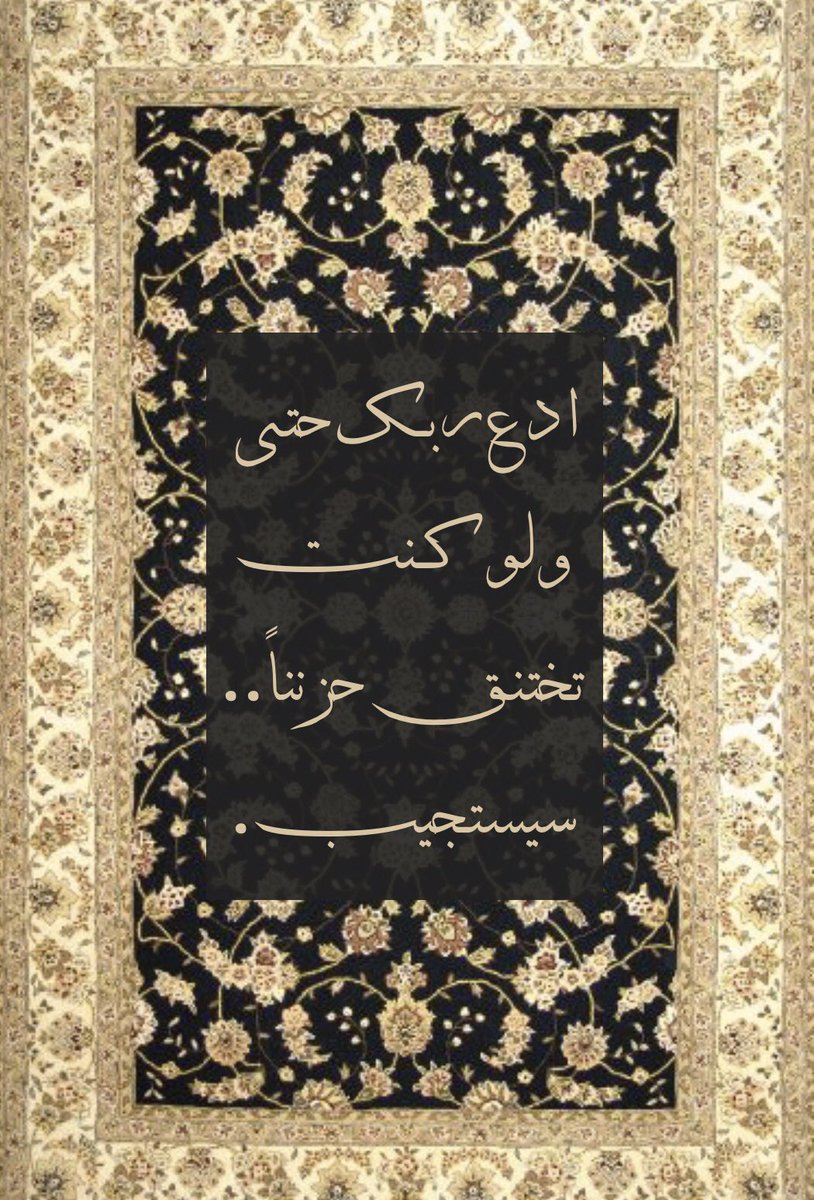 ادع ربك حتى
ولو كنت
تختنق حزنناً..
سيستجيب.